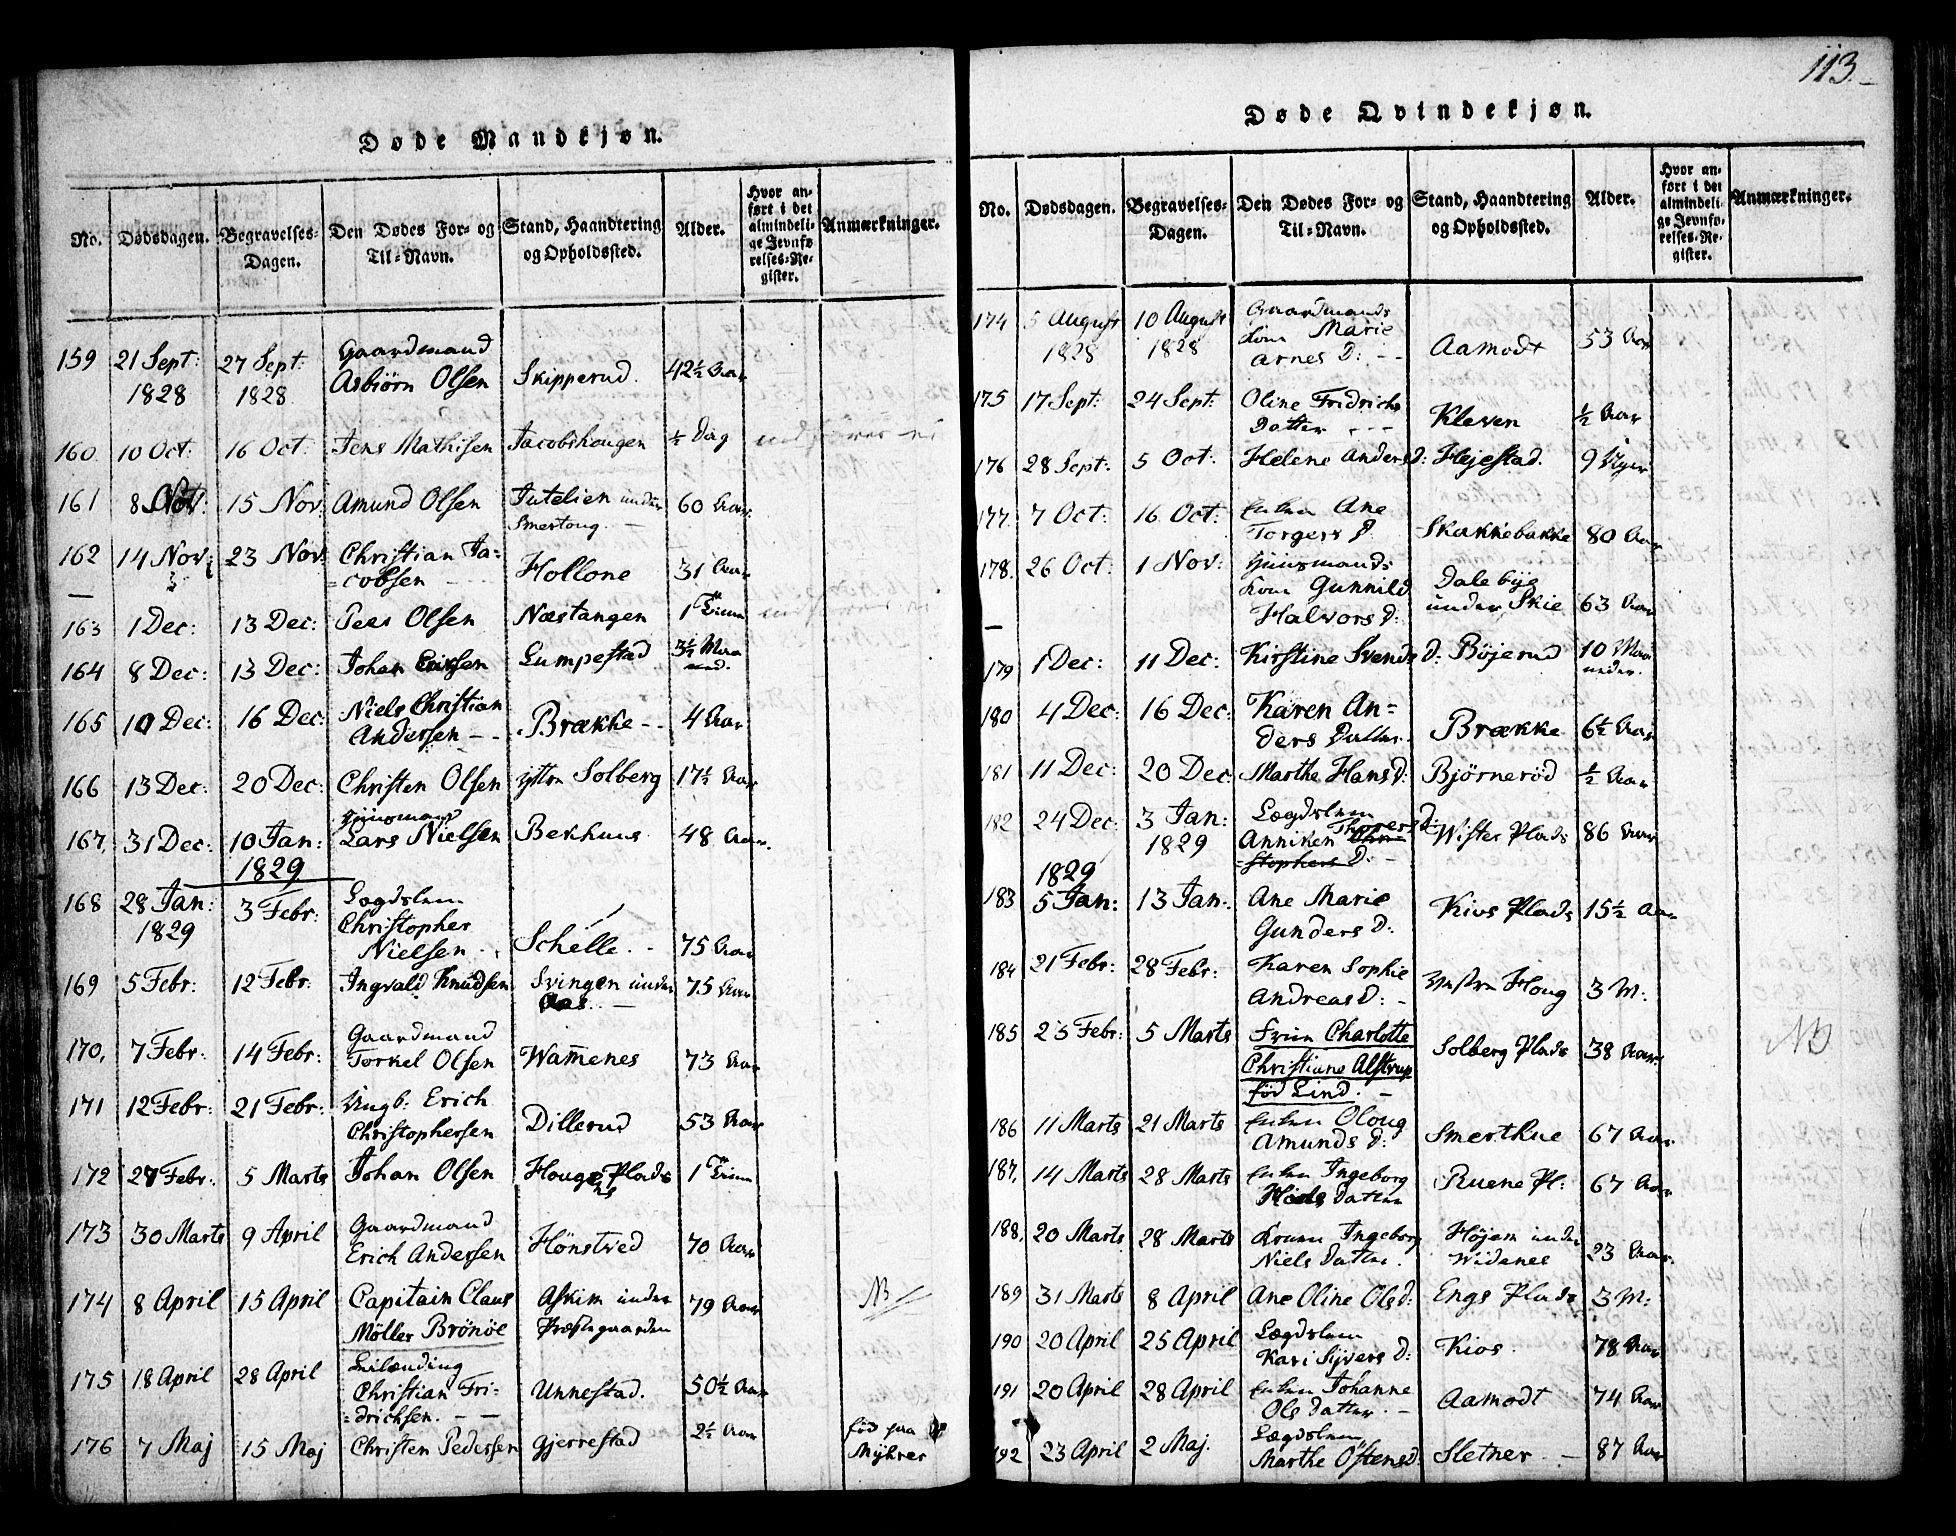 113.
Døde Mandkjøn.
No. Dødsdagen. Begravelses-Dagen. Den Dødes For- og Til-Navn. Stand, Haandtering og Opholdssted. Alder. Hvor anført i det almindelige Jevnførelses-Register. Anmærkninger.
159 21 Sept: 27 Sept: Gaardmand
1828 1828 Asbiørn Olsen Skipperud. 42½ Aar
160. 10 Oct: 16 Oct: Jens Mathisen Jacobshougen ½ Dag
161 8 Nov: 15 Nov: Amund Olsen Jutelien under 60 Aar
Smertoug.
162 14 Nov: 23 Nov: Christian Ja=
=cobsen Hollone 31 Aar
163 1 Dec: 13 Dec: Peer Olsen Næstangen 1 Time
164 8 Dec: 13 Dec: Johan Eriksen Lumpestad 3½ Maa
ned.
165 10 Dec: 16 Dec: Niels Christian
Andersen - - Brække - - 4 Aar
166 13 Dec: 20 Dec: Christen Olsen yttre Solberg 17½ Aar
167. 31 Dec: 10 Jan: Huusmand
1829 Lars Nielsen Bekhuus 48 Aar.
168 28 Jan: 3 Febr: Lægdslem
1829 Christopher
Nielsen Schelle. - 75 Aar
169 5 Febr: 12 Febr: Ingvald Knudsen Svingen under 75 Aar
Aas.
170. 7 Febr: 14 Febr: Gaardmand
Torkel Olsen Wammenes 73 Aar
171 12 Febr: 21 Febr: Ungk: Erich
Christophersen Dillerud 53 Aar
172 27 Febr: 5 Marts Johan Olsen Hougens Plads 1 Time
173 30 Marts 9 April Gaardmand
Erich Andersen Hønstved 70 Aar
174 8 April 15 April Capitain Claus Askim under 79 Aar NB
Møller Brønøe Præstegaarden
175 18 April 28 April Leilænding
Christian Fri=
=drichsen. - - Unnestad. 50½ Aar
176 7 Maj 15 Maj Christen Pedersen Gjerrestad 2½ Aar fød paa
Myhrer
Døde Qvindekjøn.
No. Dødsdagen. Begravelses-Dagen. Den Dødes For- og Til-Navn. Stand, Haandtering og Opholdssted. Alder. Hvor anført i det almindelige Jevnførelses-Register. Anmærkninger.
174 5 August 10 August Gaardmands
1828 1828 Kone Marie
Arnes D: - - Aamodt 53 Aar
175 17 Sept: 24 Sept: Oline Fridrichs
Datter - - - Kleven ½ Aar
176 28 Sept: 5 Oct: Helene Anders D: Hejestad. 9 Uger
177. 7 Oct: 16 Oct: Enken Ane
Torgers D. Skakkebakke 80 Aar
178. 26 Oct: 1 Nov: Huusmands
Kone Gunnild Dalebye
Halvors D: under Skie 63 Aar
179 1 Dec: 11 Dec: Kirstine Svends D: Bøjerud 10 Maa
neder.
180 4 Dec: 16 Dec: Karen An=
ders Datter. Brække 6½ Aar
181 11 Dec: 20 Dec: Marthe Hans D: Bjørnerød ½ Aar
182 24 Dec: 3 Jan: Lægdslem
1829 Anniken Thorers D: Wister Plads 86 Aar
=stophers D:
1829
183 5 Jan: 13 Jan: Ane Marie
Gunders D: Kios Plads 15½ Aar
184 21 Febr: 28 Febr: Karen Sophie
Andreas D: - Houg 3 M:
185 23 Febr: 5 Marts Fruen Charlotte
Christiane Alstrup Solberg Plads 38 Aar NB
fød Lind. -
186 11 Marts 21 Marts Enken Oloug
Amunds D: Smerthue 67 Aar
187. 14 Marts 28 Marts Enken Ingeborg
Datter Ruene Pl: 67 Aar
188. 20 Marts 28 Marts Konen Ingeborg Højem under
Niels Datter. Widenes 23 Aar
189 31 Marts 8 April Ane Oline Ols D: Engs Plads 3 M:
190 20 April 25 April Lægdslem
Kari Sijvers D: Kios. 78 Aar
191 20 April 28 April Enken Johanne
Ols Datter. - Aamodt 74 Aar
192 23 April 2 Maj. Lægdslem
Marthe Østens D: Sletner 87 Aar